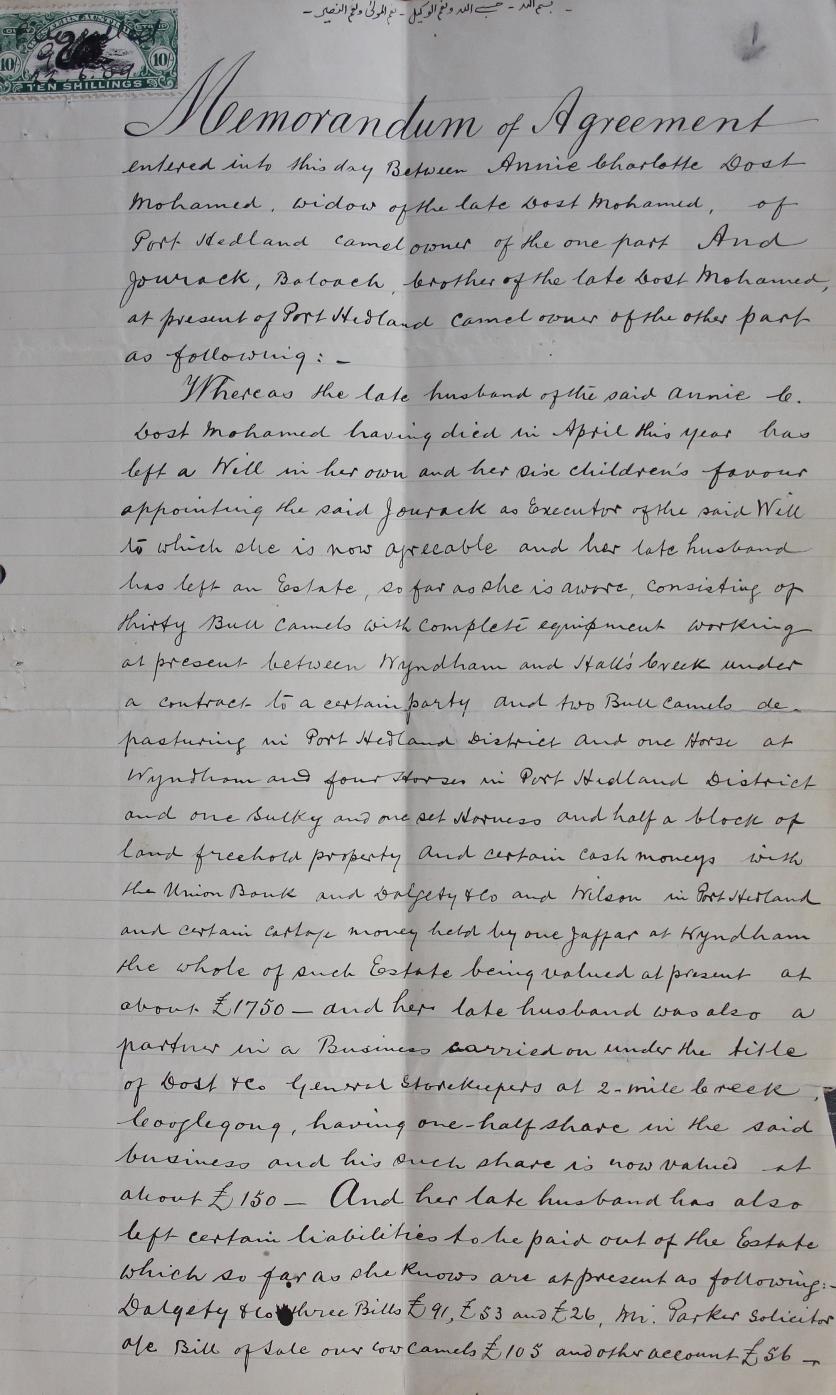 بسم الله - حسب الله ونعم الوكيل - نعم المولى ونعم النصير
1
WESTERN AUSTRALIA
10/- 10/-
22.6.09
TEN SHILLINGS
Memorandum of Agreement
entered into this day Between Annie Charlotte Dost
Mohamed, widow of the late Dost Mohamed, of
Port Hedland camel owner of the one part And
Jourack, Baloach, brother of the late Dost Mohamed,
at present of Port Hedland camel owner of the other part
as following: -
Whereas the late husband of the said Annie C.
Dost Mohamed having died in April this year has
left a Will in her own and her six children's favour
appointing the said Jourack as Executor of the said Will
to which she is now agreeable and her late husband
has left an Estate, so far as she is aware, consisting of
thirty Bull camels with complete equipment working
at present between Wyndham and Hall's Creek under
a contract to a certain party and two Bull camels de-
pasturing in Port Hedland District and one Horse at
Wyndham and four Horses in Port Hedland District
and one Sulky and one set Harness and half a block of
land freehold property and certain cash moneys with
the Union Bank and Dalgety & Co and Wilson in Port Hedland
and certain cartage money held by one Jaffar at Wyndham
the whole of such Estate being valued at present at
about £1750 - and her late husband was also a
partner in a Business carried on under the title
of Dost & Co General Storekeepers at 2-mile Creek,
Cooglegong, having one-half share in the said
business and his such share is now valued at
about £150 - And her late husband has also
left certain liabilities to be paid out of the Estate
which so far as she knows are at present as following:-
Dalgety & Co three Bills £91, £53 and £26, Mr. Parker Solicitor
a/c Bill of Sale over cow camels £105 and other account £56 -